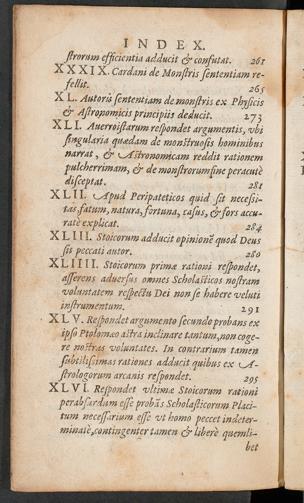 INDEX.
strorum efficientia adducit & confutat. 261
XXXIX. Cardani de Monstris sententiam re-
fellit. 265
XL. Autoris sententiam de monstris ex Physicis
& Astronomicis principiis deducit. 273
XLI. Auerroistarum respondet argumentis, vbi
singularia quædam de monstruosis hominibus
narrat, & Astronomicam reddit rationem
pulcherrimam, & de monstrorum fine peracutè
disceptat. 281
XLII. Apud Peripateticos quid sit necessi-
tas, fatum, natura, fortuna, casus, & fors accu-
ratè explicat. 284
XLIII. Stoicorum adducit opinionē quod Deus
sit peccati autor. 280
XLIIII. Stoicorum primæ rationi respondet,
asserens aduersus omnes Scholasticos nostram
voluntatem respectu Dei non se habere veluti
instrumentum. 291
XLV. Respondet argumento secundo probans ex
ipso Ptolomeo astra inclinare tantum, non coge-
re nostras voluntates. In contrarium tamen
subtilissimas rationes adducit quibus ex A-
strologorum arcanis respondet. 295
XLVI. Respondet vltimæ Stoicorum rationi
perabsurdum esse probās Scholasticorum Placi-
tum necessarium esse vt homo peccet indeter-
minatè, contingenter tamen & liberè quemli-
bet